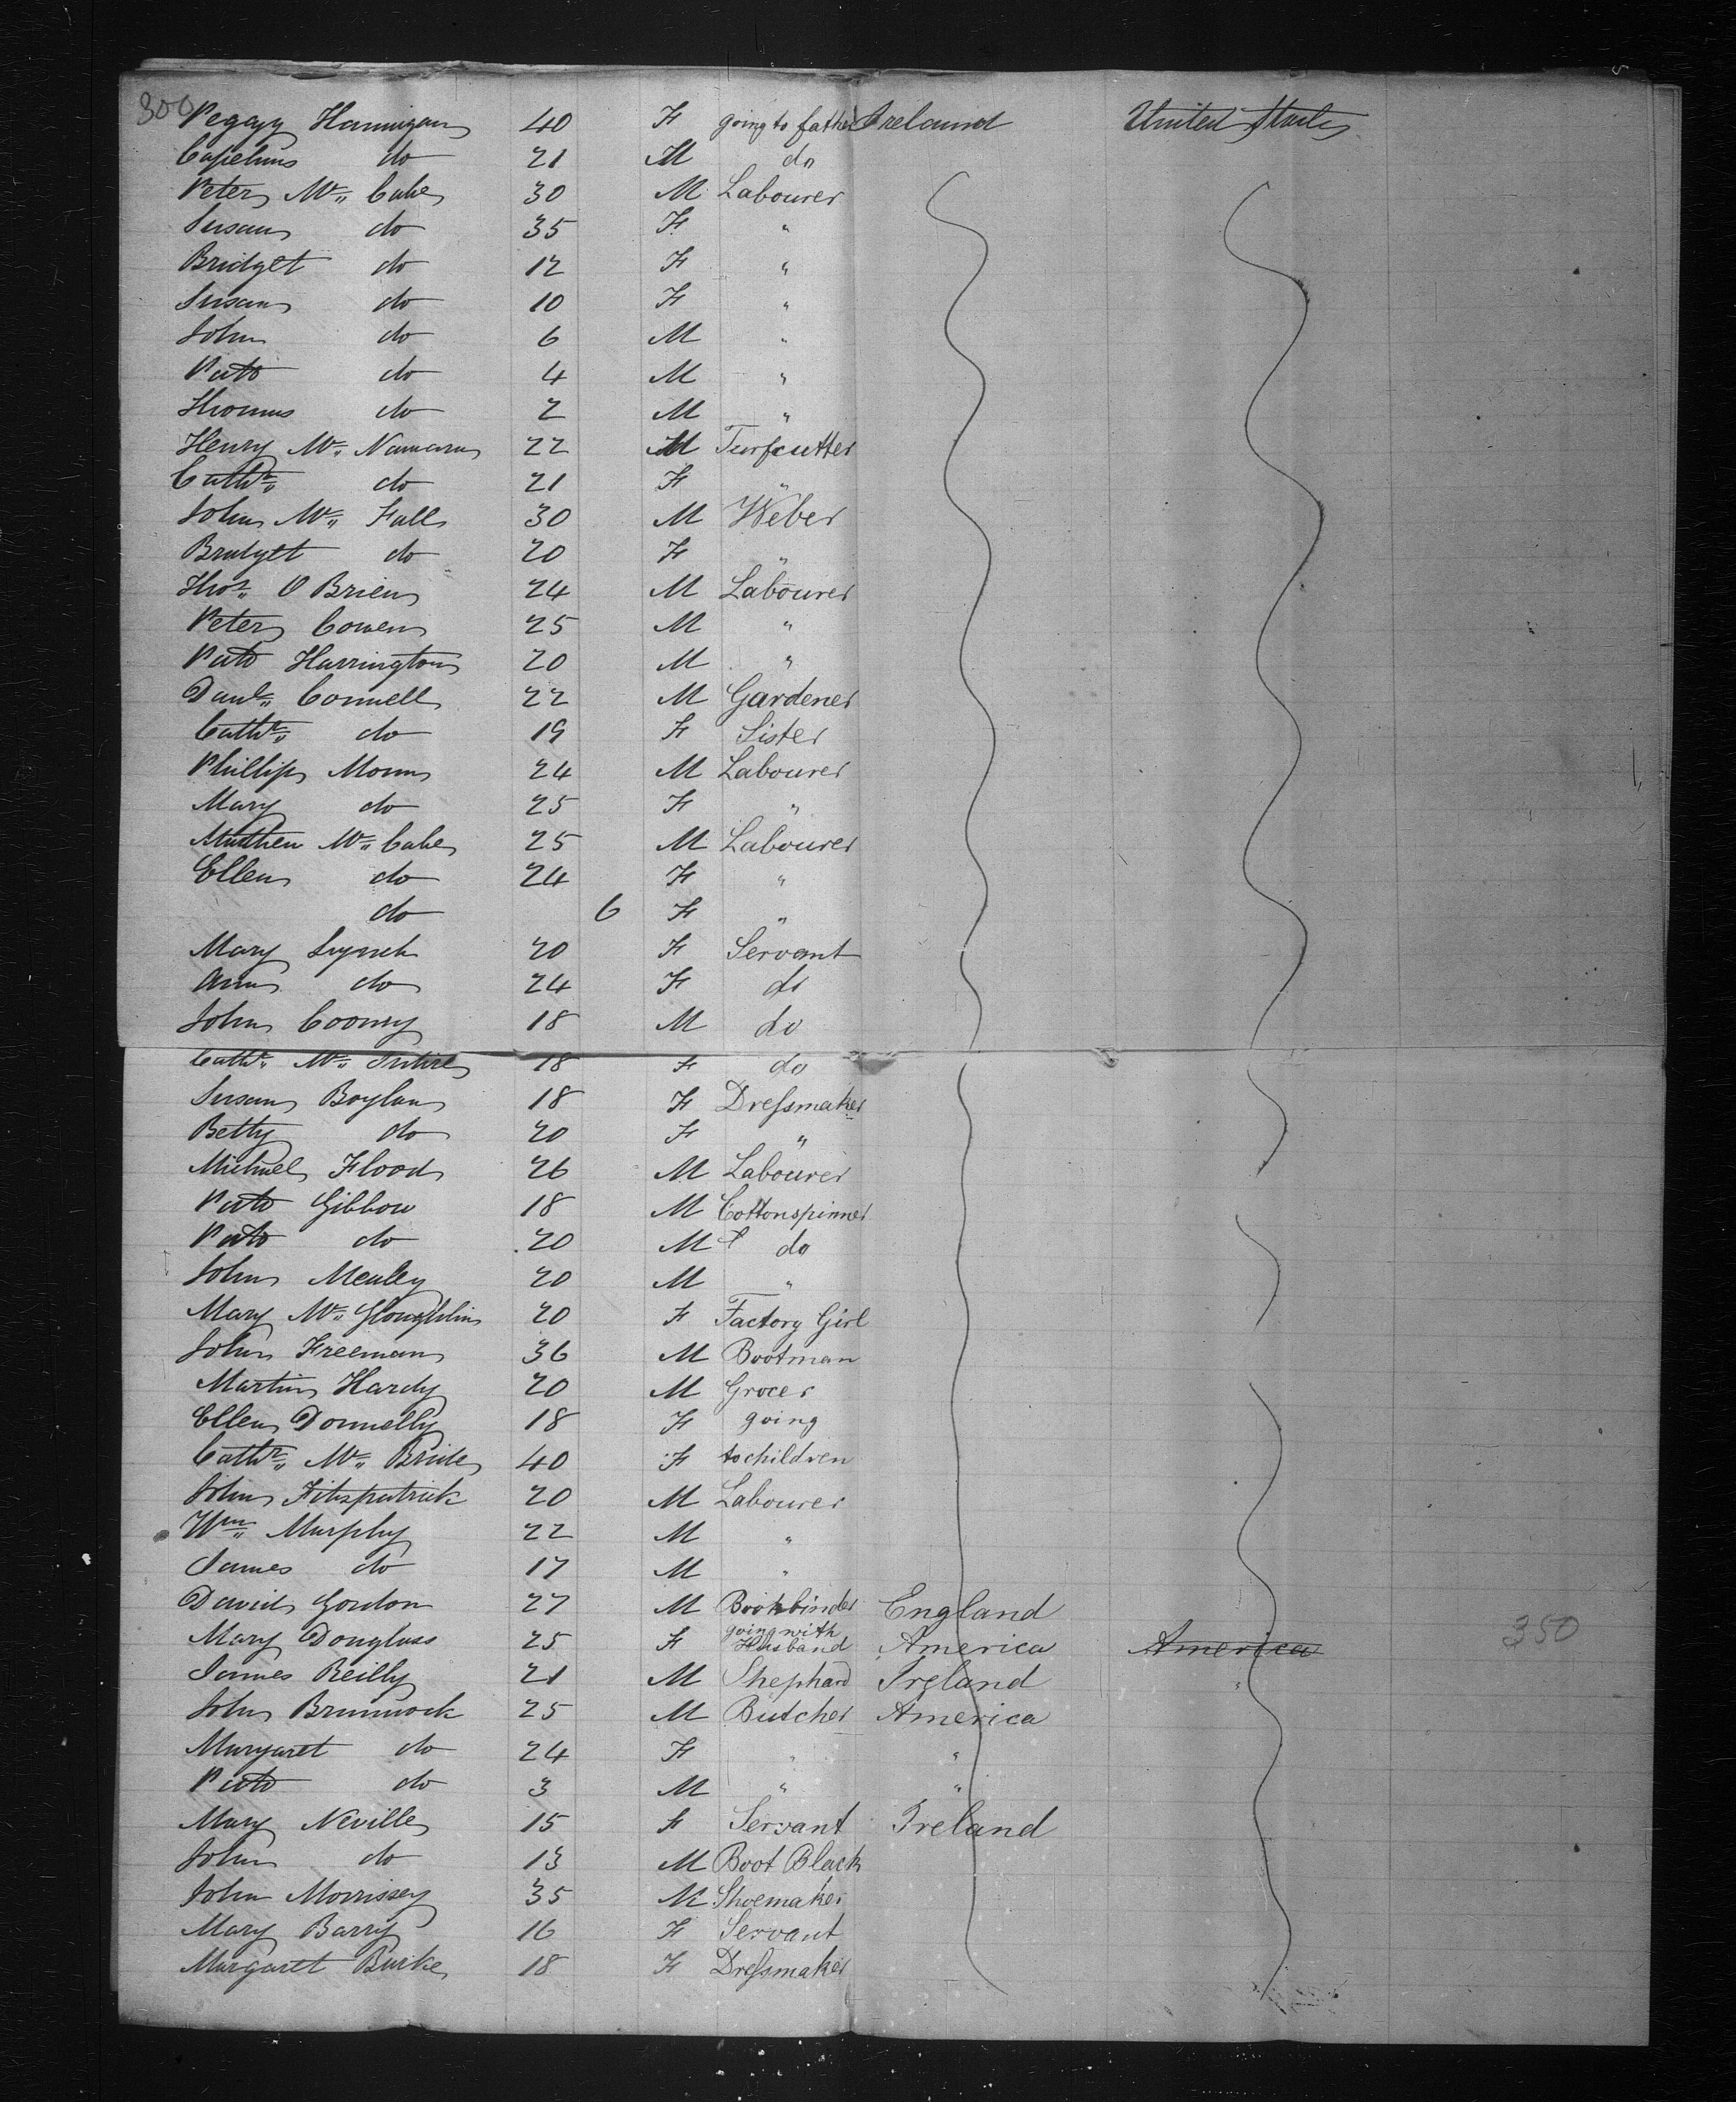 300
Peggy Hannigan 40 F going to father Ireland United States
do 21 M do
Peter Mc Cabe 30 M Labourer
Susan do 35 F "
Bridget do 12 F "
Susan do 10 F "
John do 6 M "
Patk do 4 M "
Thomas do 2 M "
Henry Mc Namara 22 M Turfcutter
Cathr do 21 F "
John Mc Fall 30 M Weber
Bridget do 20 F "
Thos O Brien 24 M Labourer
Peter Cowen 25 M "
Patk Harrington 20 M "
Danl Connell 22 M Gardener
Cathr do 19 F Sister
Phillip Monn 24 M Labourer
Mary do 25 F "
Matthew Mc Cabe 25 M Labourer
Ellen do 24 F "
do 6 F "
Mary Lynch 20 F Servant
Ann do 24 F do
John Coony 18 M do
Cathr Mc Intire 18 F do
Susan Boylan 18 F Dressmaker
Betty do 20 F "
Michael Flood 26 M Labourer
Patk Gibbon 18 M Cottonspinner
Patk do 20 M do
John Mealey 20 M "
Mary Mc Gloughlin 20 F Factory Girl
John Freeman 36 M Bootman
Martin Hardy 20 M Grocer
Ellen Donnelly 18 F going
Cathr Mc Bride 40 F to children
John Fitzpatrick 20 M Labourer
Wm Murphy 22 M "
James do 17 M "
David Gordon 27 M Bookbinder England
Mary Douglass 25 F going with Husband America America 350
James Reilly 21 M Shephard Ireland
John Brunnock 25 M Butcher America
Margaret do 24 F " "
Patk do 3 M " "
Mary Neville 15 F Servant Ireland
John do 13 M Boot Black
John Morrissey 35 M Shoemaker
Mary Barry 16 F Servant
Margaret Burke 18 F Dressmaker